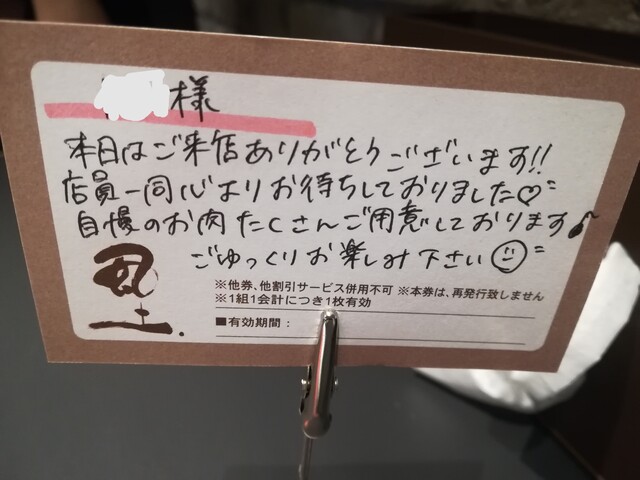 様
本日はご来店ありがとうございます!!
店員一同心よりお待ちしておりました♡
自慢のお肉たくさんご用意しております
ごゆっくりお楽しみ下さい☺
風土.
※他券、他割引サービス併用不可 ※本券は、再発行致しません
※1組1会計につき1枚有効
■有効期間：